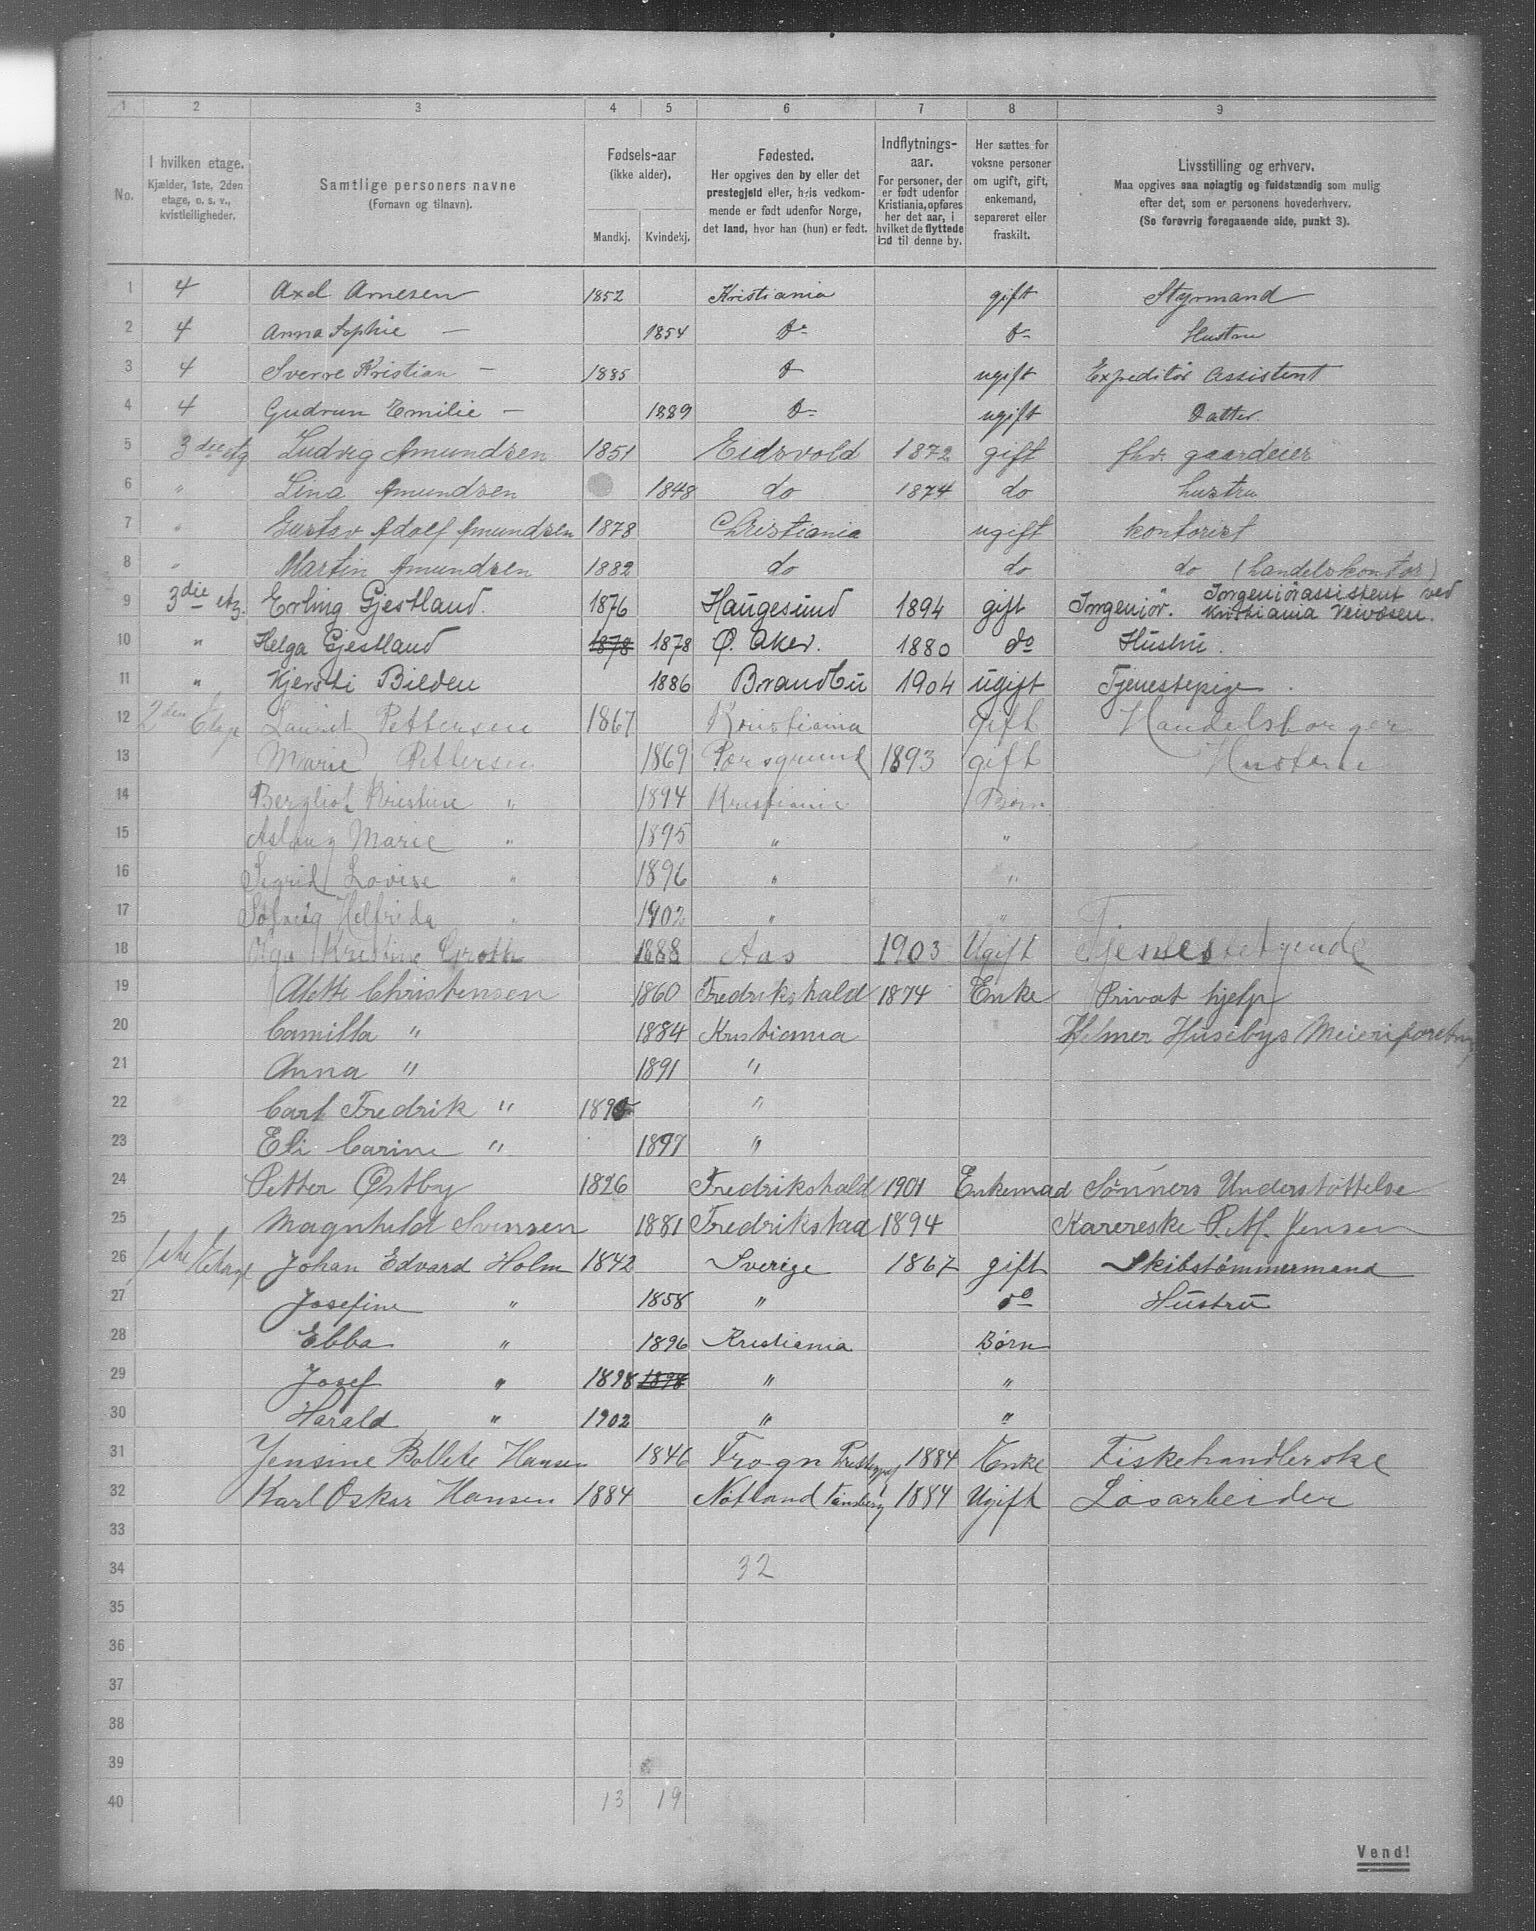 1 2 3 4 5 6 7 8 9
No. | I hvilken etage. Kjælder, 1ste, 2den etage, o. s. v., kvistleiligheder. | Samtlige personers navne (Fornavn og tilnavn). | Fødsels-aar (ikke alder). Mandkj. Kvindekj. | Fødested. Her opgives den by eller det prestegjeld eller, hvis vedkommende er født udenfor Norge, det land, hvor han (hun) er født. | Indflytnings-aar. For personer, der er født udenfor Kristiania, opføres her det aar, i hvilket de flyttede ind til denne by. | Her sættes for voksne personer om ugift, gift, enkemand, separeret eller fraskilt. | Livsstilling og erhverv. Maa opgives saa nøiagtig og fuldstændig som mulig efter det, som er personens hovederhverv. (Se forøvrig foregaaende side, punkt 3).
1 4 Axel Arnesen 1852 Kristiania gift Styrmand
2 4 Anna Sophie — 1854 Do Do Hustru
3 4 Sverre Kristian — 1885 Do ugift Expeditør Assistent
4 4 Gudrun Emilie — 1889 Do ugift Datter
5 3die etg Ludvig Amundsen 1851 Eidsvold 1872 gift fhv. gaardeier
6 " Lina Amundsen 1848 do 1874 do hustru
7 " Gustav Adolf Amundsen 1878 Christiania ugift kontorist
8 " Martin Amundsen 1882 do do do (handelskontor)
9 3die etg. Erling Gjestland. 1876 Haugesund 1894 gift Ingeniør. Ingeniörassistent ved Kristiania Veivæsen.
10 " Helga Gjestland 1878 1878 Ø. Aker. 1880 do Hustru.
11 " Kjersti Bilden 1886 Brandbu 1904 ugift Tjenestepige.
12 2den Etage Laurit Pettersen 1867 Kristiania gift Handelsborger
13 Marie Pettersen 1869 Porsgrund 1893 gift Hustru
14 Bergliot Kristine " 1894 Kristiania Børn
15 Aslaug Marie " 1895 " "
16 Sigrid Lovise " 1896 " "
17 Solveig Helfrida " 1902 " "
18 Olga Kristine Groth 1888 Aas 1903 Ugift Tjenestetgende
19 Alette Christensen 1860 Fredrikshald 1874 Enke Privat hjelp
20 Camilla " 1884 Kristiania Helmer Husebys Meieriforetng
21 Anna " 1891 "
22 Carl Fredrik " "
23 Eli Carine " 1897 "
24 Petter Østby 1826 Fredrikshald 1901 Enkemad Sønners Understøttelse
25 Magnhild Svensen 1881 Fredrikstad 1894 Jensen
26 1ste Etage Johan Edvard Holm 1842 Sverige 1867 gift Skibstømmermand
27 Josefine " 1858 " do Hustru
28 Ebba " 1896 Kristiania Børn
29 Josef " 1898 1898 " "
30 Harald " 1902 " "
31 Jensine Bollete Hansen 1846 Frogn Prestegj 1884 Enke Fiskehandlerske
32 Karl Oskar Hansen 1884 Nøtland Tønsberg 1884 Ugift Løsarbeider
33
34 32
35
36
37
38
39
40 13 19
Vend!